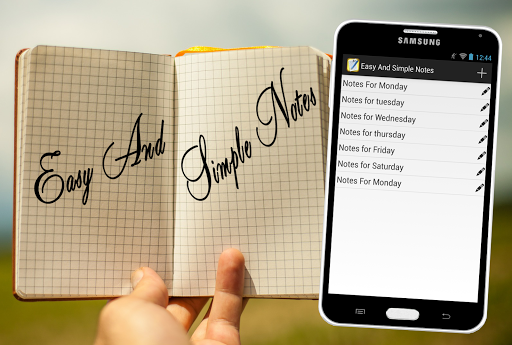 Easy And
Simple Notes
SAMSUNG
12:44
Easy And Simple Notes
Notes For Monday
Notes for tuesday
Notes for Wednesday
Notes for thursday
Notes for Friday
Notes for Saturday
Notes For Monday